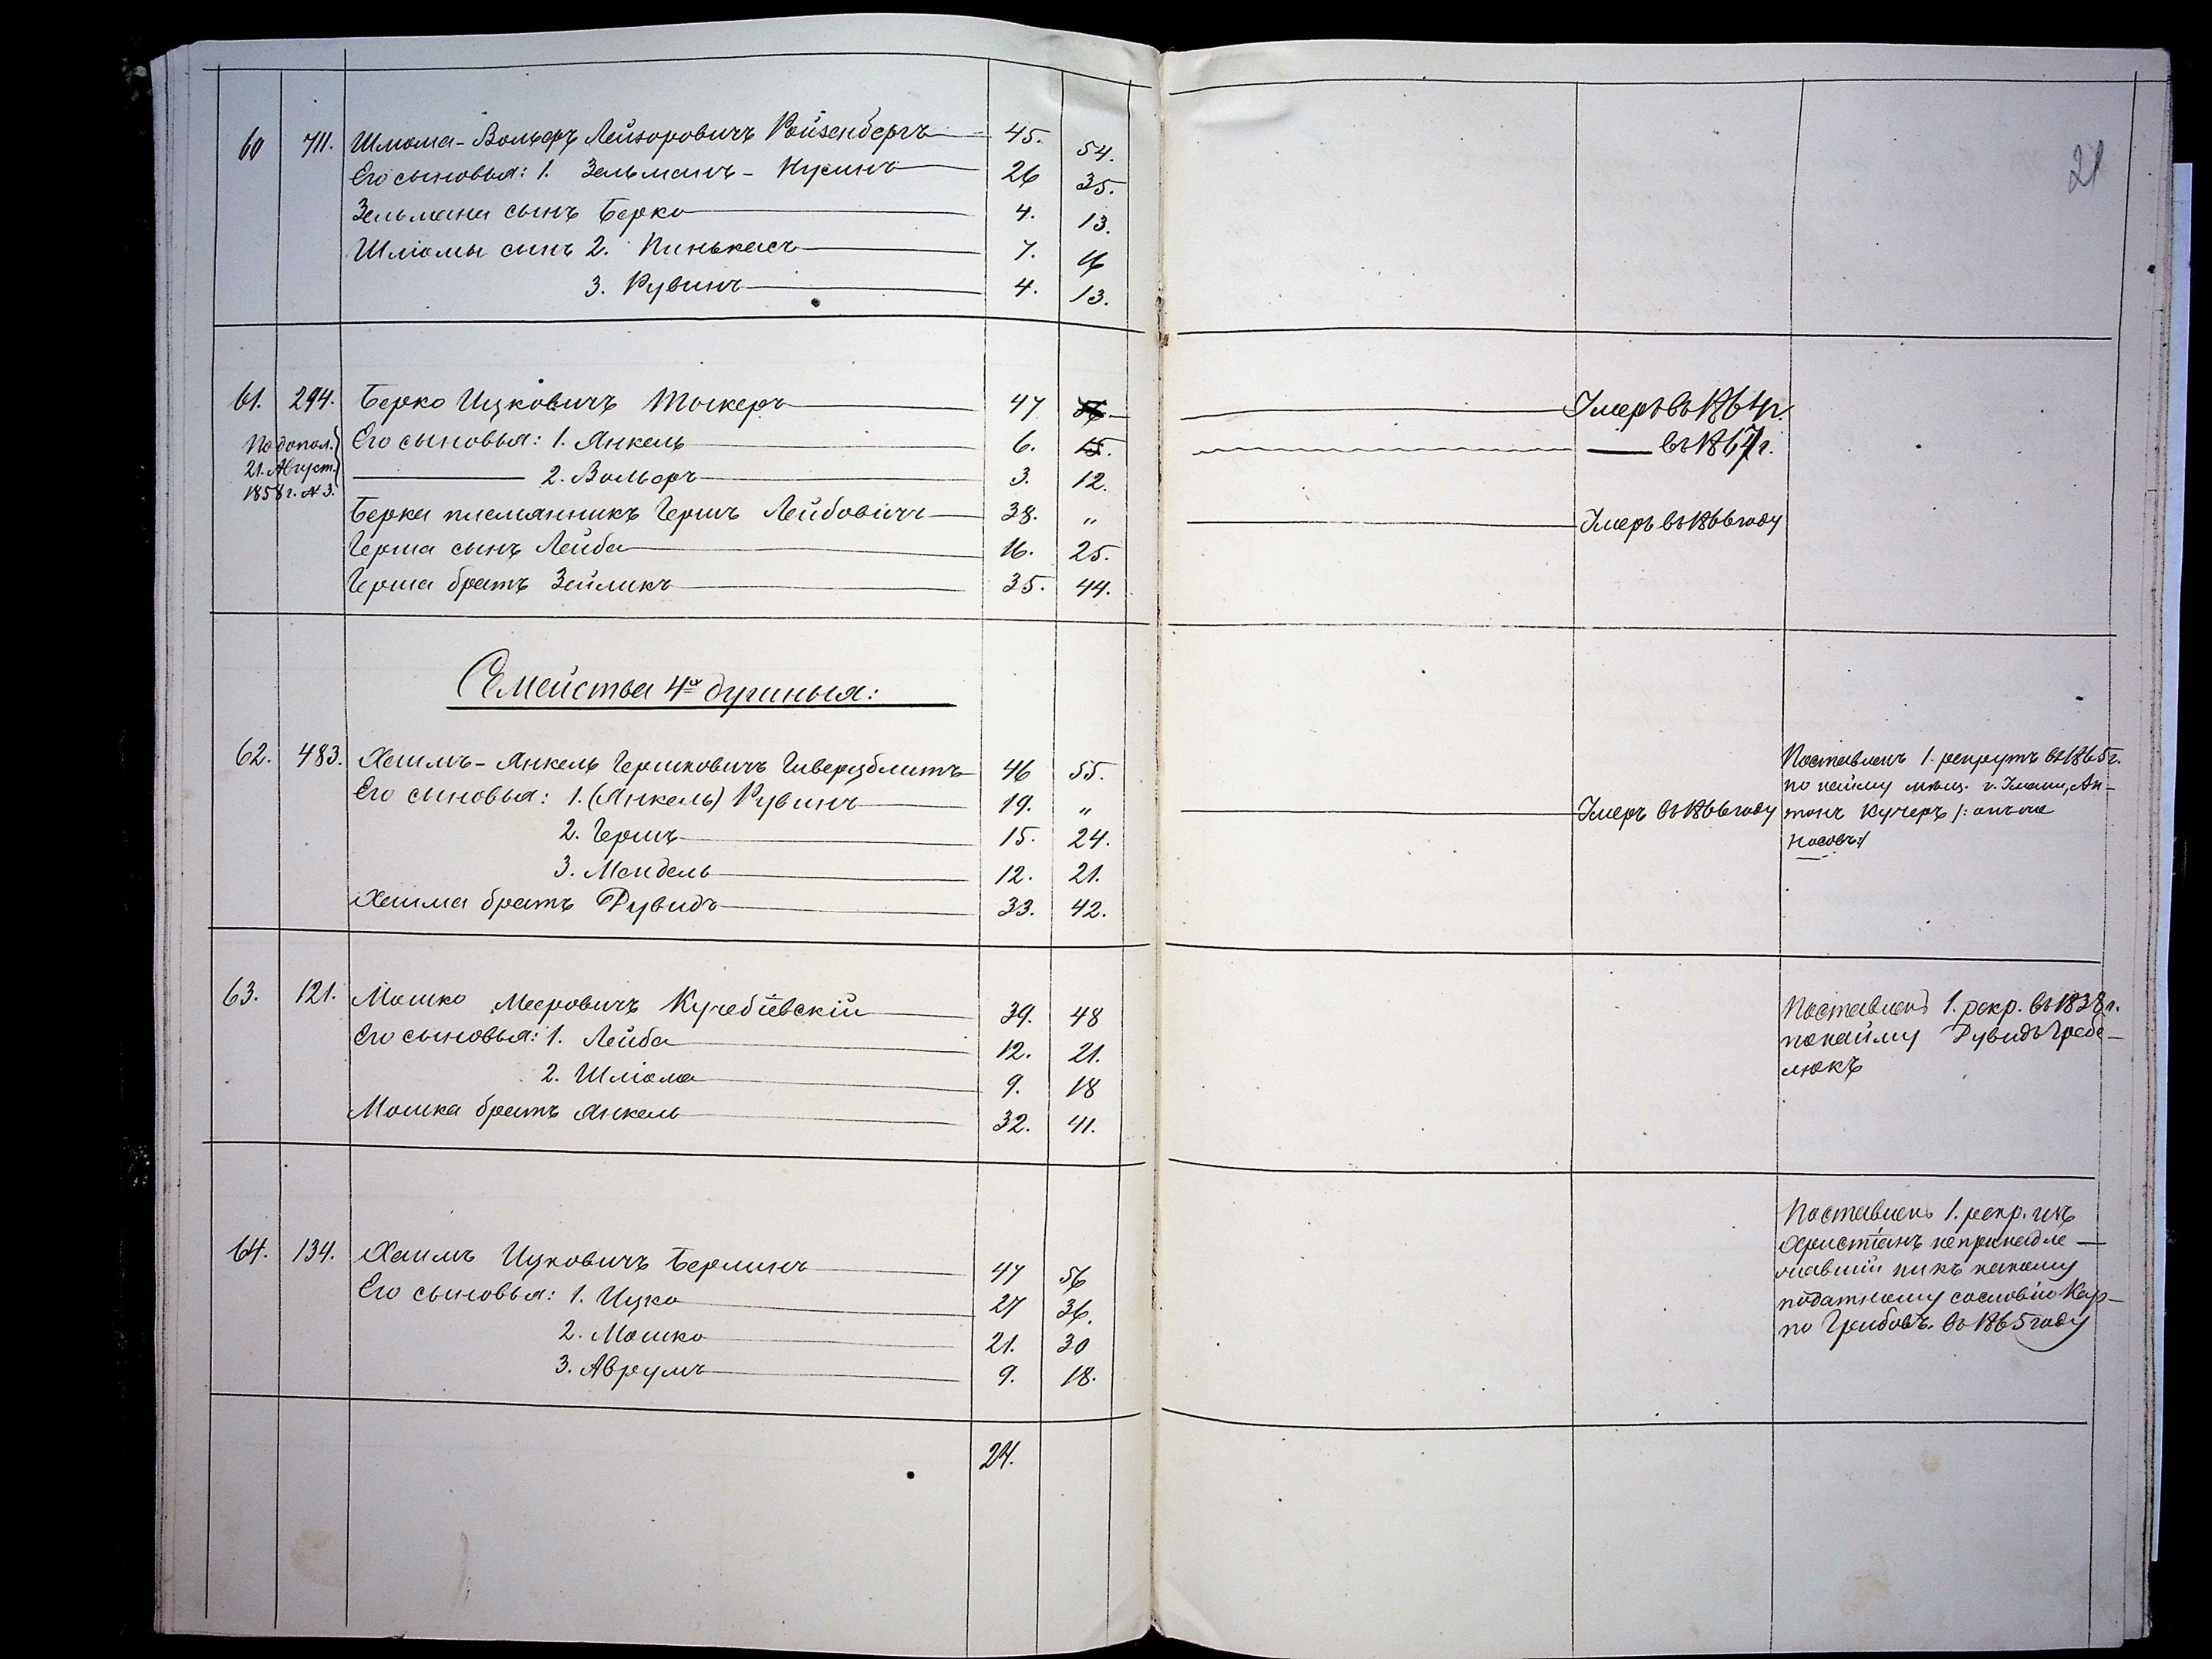 21
60 711. Шлома-Вольфъ Лейзоровичъ Ройзенбергъ 45. 54.
Его сыновья: 1. Зельманъ-Нусинъ 26 35.
Зельмана сынъ Берко 4. 13.
Шлiомы сынъ 2. Пинькасъ 7. 16
3. Рувинъ 4. 13.
61. 294. Берко Ицковичъ Токкеръ 47 Умеръ въ 1864 г.
По допол. Его сыновья: 1. Янкель 6. 15. въ 1867 г.
21. Август. 2. Вольфъ 3. 12.
1858 г. № 3.
Берка племянникъ Гершъ Лейбовичъ 38. „ Умеръ въ 1866 году
Герша сынъ Лейба 16. 25.
Герша братъ Зейликъ 35. 44.
Семейства 4х душныя:
62. 483. Хаимъ-Янкель Гершковичъ Гиверцблитъ 46 55. Поставленъ 1. рекрутъ въ 1865 г.
Его сыновья: 1. (Янкель) Рувинъ 19. „ Умеръ въ 1866 году по найму мѣщ. г. Умани, Ан-
2. Гершъ 15. 24. тонъ Кучеръ /: онъ же
3. Мендель 12. 21. Носовъ :/
Хаима братъ Дувидъ 33. 42.
63. 121. Мошко Мееровичъ Кучебiевскiй 39. 48 Поставленъ 1. рекр. въ 1838 г.
Его сыновья: 1. Лейба 12. 21. по найму Дувидъ Гребе-
2. Шлiома 9. 18 люкъ
Мошка братъ Янкель 32. 41.
64. 134. Хаимъ Ицковичъ Берлинъ 47 56 Поставленъ 1. рекр. изъ
Его сыновья: 1. Ицко 27 36. Христiанъ непринадле-
2. Мошко 21. 30 жавшiй ни къ какому
3. Аврумъ 9. 18. податному сословiю Кар-
по Грибовъ. въ 1865 году
24.